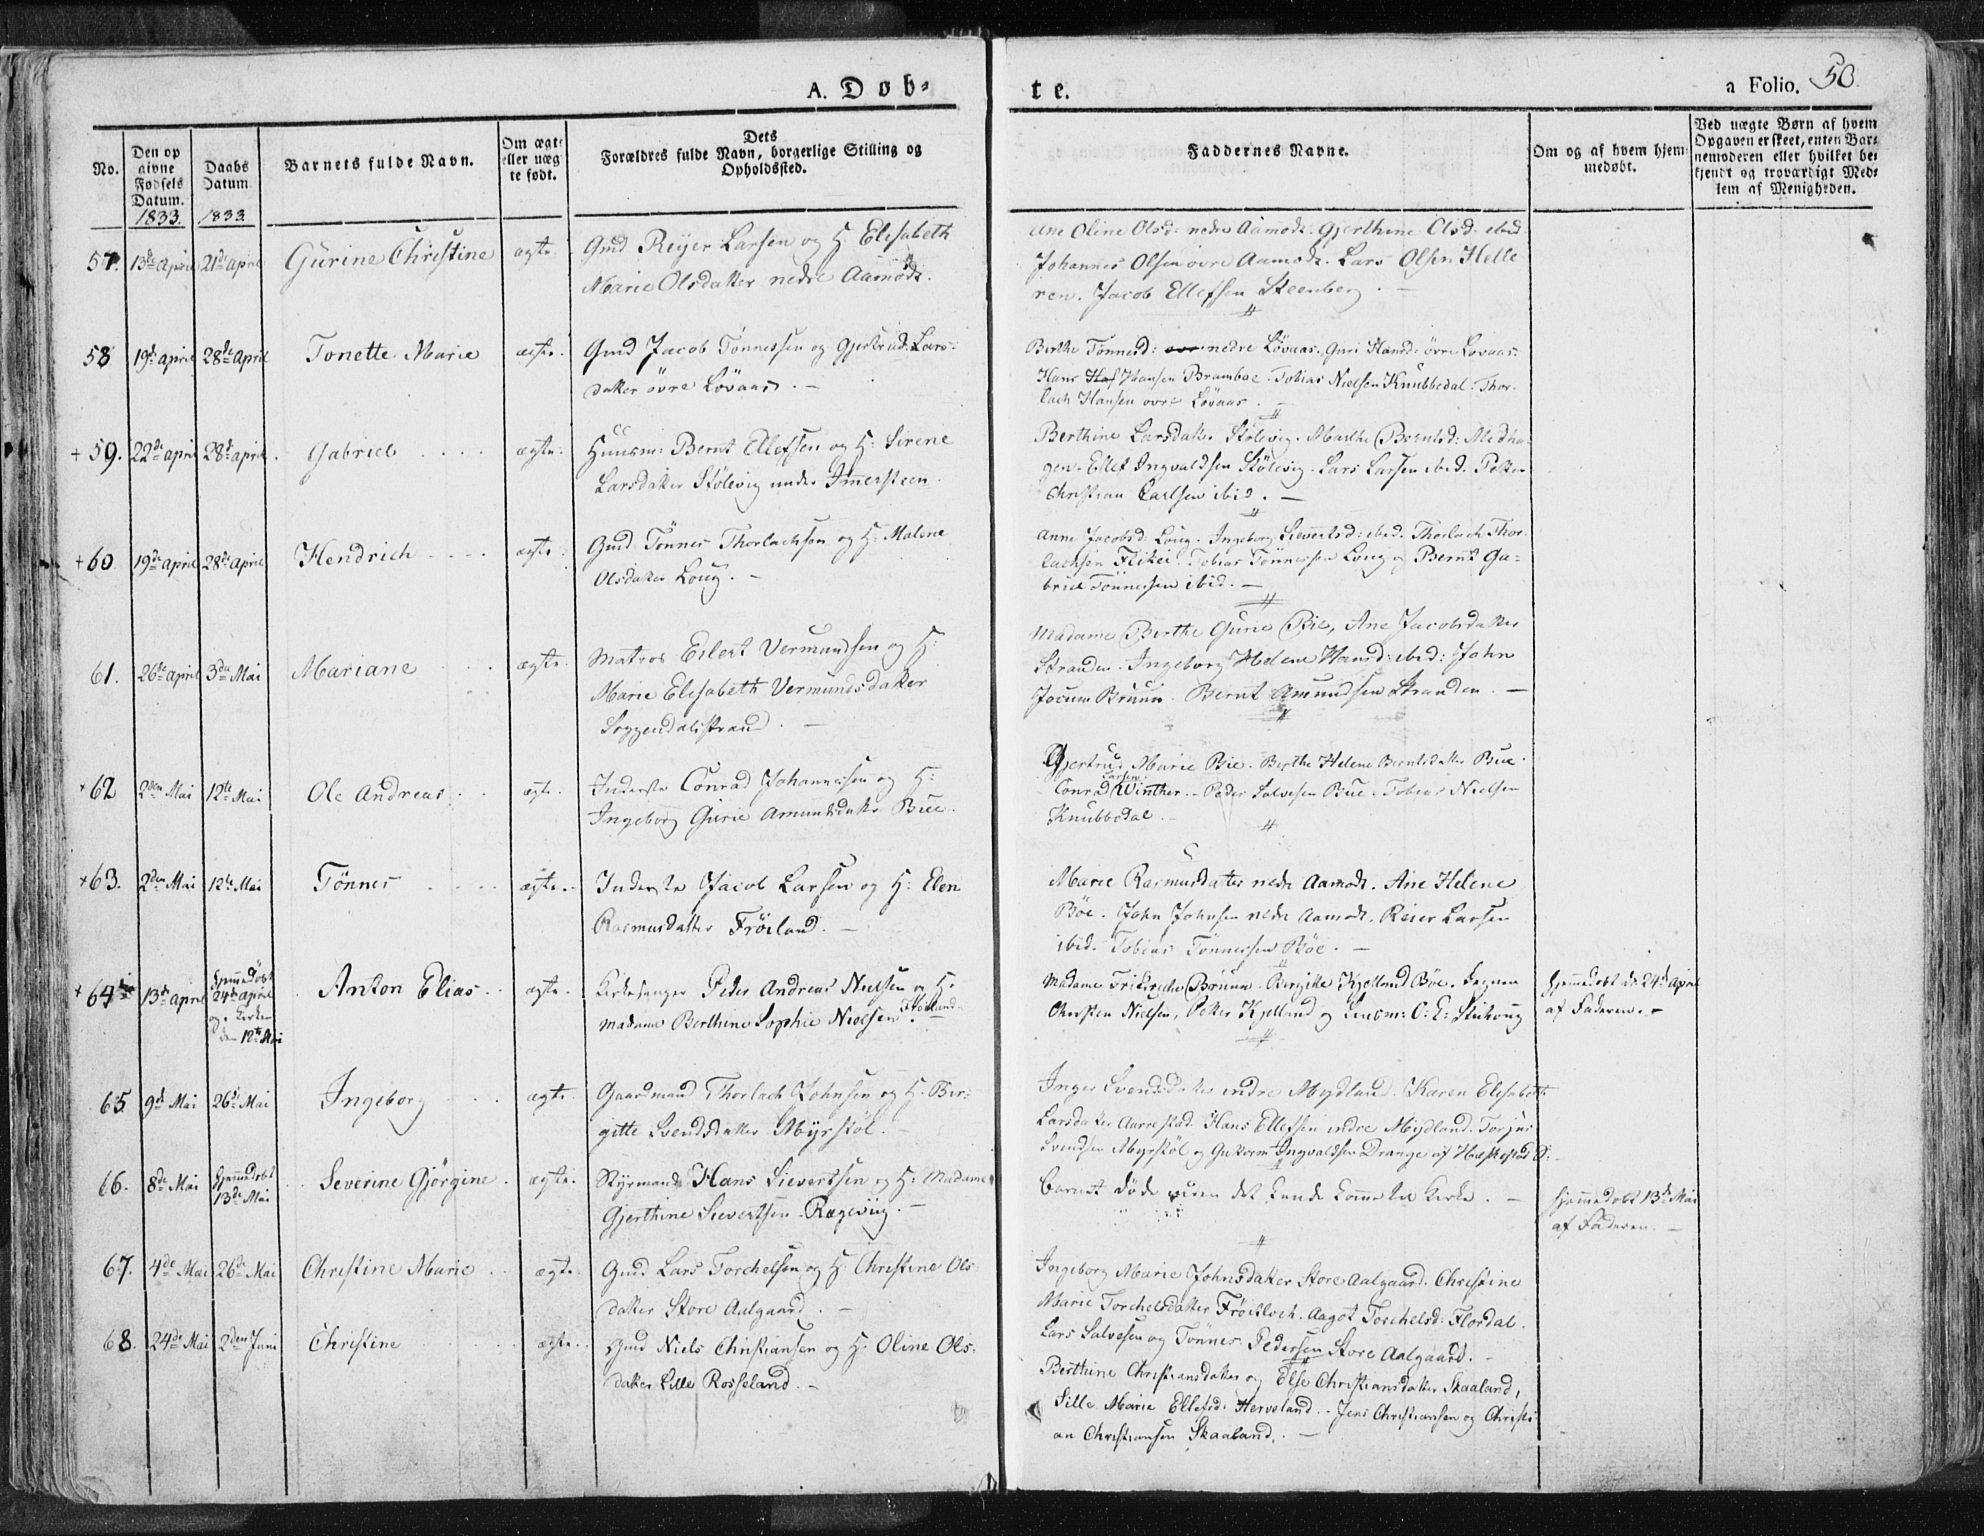 A. Døb-
te.
a Folio. 50
No.
Den op
givne
Fødsels
Datum.
1833.
Daabs
Datum
1833
Barnets fulde Navn.
Om ægte
eller uæg
te født.
Dets
Forældres fulde Navn, borgerlige Stilling og
Opholdssted.
Faddernes Navne.
Om og af hvem hjem-
medøbt.
Ved uægte Børn af hvem
Opgaven er skeet, enten Bar-
nemoderen eller hvilket be-
kjendt og troværdigt Med-
lem af Menigheden.
57. 13de April 21de April Gurine Christine ægte.
Gmd Reijer Larsen og H. Elisabeth
Marie Olsdatter nedre Aamodt.
Ane Oline Olsd: nedre Aamodt. Gjerthine Olsd: ibid
Johannes Olsen øvre Aamodt. Lars Olsen Helle
ren. Jacob Ellefsen Steenberg. —
58 19de April 28de April Tonette Marie ægte.
Gmd Jacob Tönnessen og Gjertrud Lars-
datter övre Lövaas. —
Berthe Tönnesd: nedre Lövaas. Guri Hansd: övre Lovaas.
Hans Hansen Bramboe. Tobias Nielsen Knubbedal. Thor-
lach Hansen ovre Lövaas.
+ 59. 22de April 28de April. Gabriel ægte.
Huusm: Bernt Ellefsen og H: Sirene
Larsdatter Stölevig under Immersteen.
Berthine Larsdatter Stölevig. Marthe Berntsd: Medha-
gen. Ellef Ingvaldsen Stölevig. Lars Larsen ibid. Petter
Christian Carlsen ibid. —
+ 60 19de April 28de April Hendrich ægte.
Gmd Tönnes Thorlachsen og H: Malene
Olsdatter Loug. —
Anne Jacobsd: Loug. Ingeborg Sievertsd: ibid. Thorlach Thor-
lachsen Flikei. Tobias Tönnessen Loug og Bernt Ga-
briel Tönnessen ibid. —
61. 26de April 3die Mai Mariane ægte.
Matros Eilert Vermundsen og H:
Marie Elisabeth Vermundsdatter
Soggendalsstrand. —
Madame Berthe Gurie Bie, Ane Jacobsdatter
Stranden. Ingeborg Helene Hansd: ibid: John
Jocum Bruun. Bernt Amundsen Stranden. —
+ 62 2den Mai 12te Mai Ole Andreas ægte.
Inderste Conrad Johannessen og H:
Ingeborg Gurie Amundsdatter Bue.
Gjertrud Marie Bie. Berthe Helene Berntsdatter Bue.
Conrad Larsen Winther. Peder Salvesen Bue. Tobias Nielsen
Knubbedal. —
+ 63. 2den Mai 12te Mai Tönnes ægte.
Inderste Jacob Larsen og H: Elen
Rasmusdatter Fröiland. —
Marie Rasmusdatter nedre Aamodt. Ane Helene
Böe. John Johnsen nedre Aamodt. Reier Larsen
ibid. Tobias Tönnessen Böe. —
+ 64 13de April
Hjemmedöbt
24de April
og i Kirken
den 12te Mai
Anton Elias. ægte.
Kirkesanger Peder Andreas Nielsen og H:
Madame Berthine Sophie Nielsen Fröiland.
Madame Friderche Bruun. Bergitte Kjelland Böe.
Christen Nielsen, Petter Kjelland og
Hjemmedöbt de 24de April
af Faderen. —
65. 9de Mai 26de Mai Ingeborg ægte.
Gaardmand Thorlach Johnsen og H. Ber-
gitte Svendsdatter Myrstöl. —
Inger Svendsdatter indre Mydland. Karen Elisabeth
Larsdatter Aarrestad. Hans Ellefsen indre Mydland. Torjus
Svendsen Myrstöl og Guttorm Ingvaldsen Drange af Heskestad S:
66. 8de Mai
Hjemmedöbt
13de Mai
Severine Gjörgine. ægte.
Styrmand Hans Sievertsen og H: Madame
Gjerthine Sievertsen. Rægeviig. —
Barnet döde inden det kunde komme til Kirke. —
Hjemmedöbt 13de Mai
af Faderen. —
67. 4de Mai 26de Mai Christine Marie ægte.
Gmd Lars Torchelsen og H: Christine Ols-
datter Store Aalgaard. —
Ingeborg Marie Johnsdatter Store Aalgaard. Christine
Marie Torchelsdatter Fröitloch. Aagot Torchelsd: Flordal.
Lars Salvesen og Tönnes Pedersen Store Aalgaard. —
68. 24de Mai 2den Juni Christine ægte.
Gmd Niels Christiansen og H: Oline Ols-
datter Lille Rosseland. —
Berthine Christiansdatter og Else Christiansdatter Skaaland,
Sille Marie Ellefsd: Herveland. Jens Christiansen og Christi-
an Christiansen Skaaland. —